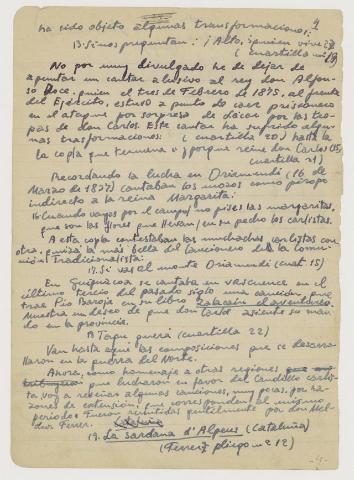 4
ha sido objeto algunas transformaciones:
13. Si nos preguntan: ¡Alto, ¿quien vive?
(cuartilla nº 19)
No por muy divulgado he de dejar de
apuntar un cantar alusivo al rey don Alfon-
so Doce: quien el tres de Febrero de 1875, al frente
del Ejército, estuvo a punto de caer prisionero
en el ataque por sorpresa de Lácar por las tro-
pas de don Carlos. Este cantar ha sufrido algu-
nas trasformaciones: (cuartilla 20) hasta
la copla que termina v ¡porque reine don Carlos (15)
(cuartilla 21)
Recordando la lucha en Oriamendi (16 de
Marzo de 1837) cantaban los mozos como piropo
indirecto a la reina Margarita:
16. Cuando vayas por el campo/ no pises las margaritas,
que son las flores que llevan/ en su pecho los carlistas.
A esta copla contestaban las muchachas carlistas con
otra, quizá la mas bella del Cancionero de la Comu-
nión Tradicionalista:
17. Si vas al monte Oriamendi (cuart 15)
En Guipúzcoa se cantaba en vascuence en el
último tercio del pasado siglo una canción que
trae Pio Baroja en su libro Zalacain el aventurero
Muestra un deseo de que don Carlos asiente su man-
do en la provincia.
(cuartilla 22)
Van hasta aquí las composiciones que se desarro-
llaron en la guerra del Norte.
Ahora, como homenaje a otras regiones
que lucharon en favor del Caudillo carlis-
ta voy a reseñar algunas canciones, muy pocas, por ra-
zones de extensión, que corresponden al mismo
periodo. Fueron remitidas gentilmente por don Mel-
chor Ferrer.
19. La Sardana d'Alpens (Cataluña)
(Ferrer pliego nº 12)